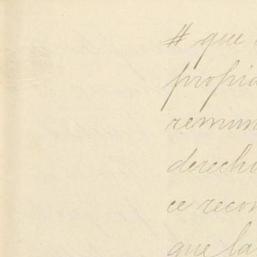 # que
propia
remun
derecho
ce recon
que la